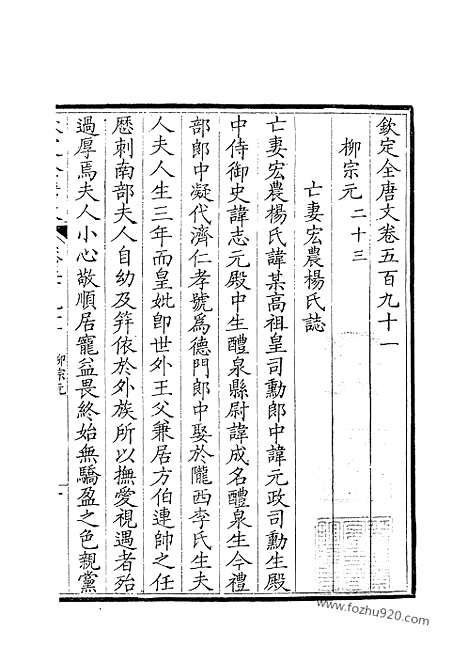 欽定全唐文卷五百九十一
柳宗元二十三
亡妻宏農楊氏誌
亡妻宏農楊氏諱某高祖皇司勳郎中諱元政司勳生殿
中侍御史諱志元殿中生醴泉縣尉諱成名醴泉生今禮
部郎中凝代濟仁孝號爲德門郎中娶於隴西李氏生夫
人夫人生三年而皇妣卽世外王父兼居方伯連帥之任
歷刺南部夫人自幼及笄依於外族所以撫愛視遇者殆
過厚焉夫人小心敬順居寵益畏終始無驕盈之色親黨
柳宗元
www.fozhu920.com